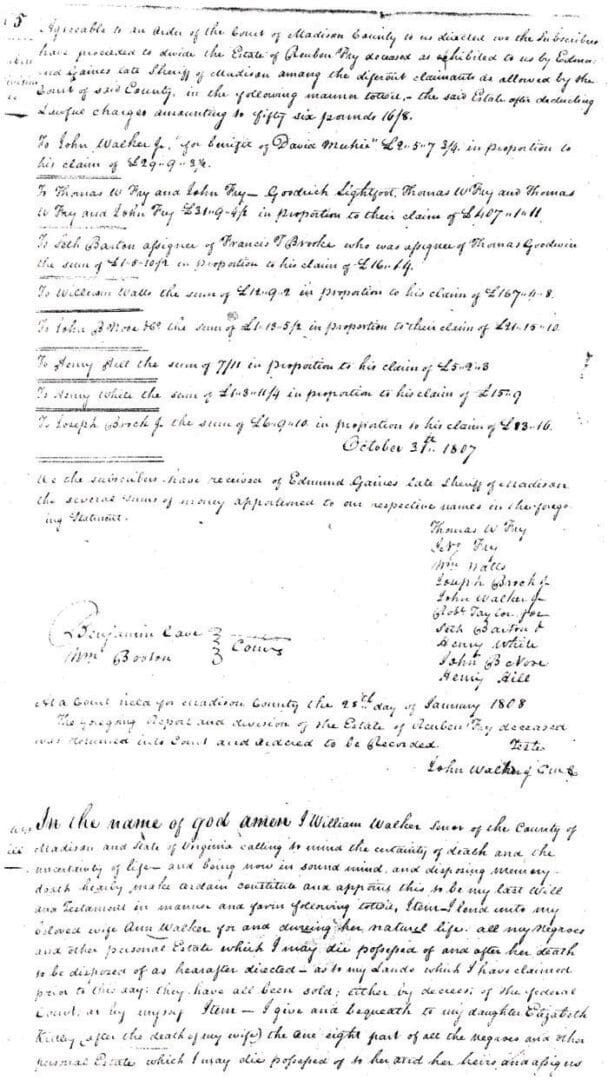 5
Agreeable to an Order of the Court of Madison County to us directed we the Subscribers
have proceeded to divide the Estate of Reuben Fry deceased as exhibited to us by Edmu
nd Gaines late Sheriff of Madison among the different claimants as allowed by the
Court of said County, in the following manner towit,- the said Estate after deducting
Lawful charges amounting to fifty six pounds 16/8.
To John Walker Jr. "for benifit of David" £2-5-7 3/4 in proportion to
his claim of £29-9-3¼.
To Thomas W Fry and John Fry- Goodrich Lightfoot, Thomas W Fry and Thomas
W Fry and John Fry £31-9-4½ in proportion to their claim of £407-1-11.
To Seth Barton assignee of Francis T Brooke who was assignee of Thomas Goodwin
the sum of £1-5-10½ in proportion to his claim of £16-14.
To William Watts the sum of £12-9-2 in proportion to his claim of £167-4-8.
To John B the sum of £1-13-5½ in proportion to their claim of £21-15-10
To Henry Hill the sum of 7/11 in proportion to his claim of £5-2-3
To Henry White the sum of £1-3-11¼ in proportion to his claim of £15-9
To Joseph Brock Jr the sum of £6-9-10. in proportion to his claim of £83-16.
October 31st. 1807
We the subscribers have received of Edmund Gaines late Sheriff of Madison
the several sums of money apportioned to our respective names in the forego
ing Statement.
Thomas W Fry
Fry
Wm Watts
Joseph Brock Jr
John Walker Jr
Robt Taylor for
Seth Barton
Henry White
John B
Henry Hill
Benjamin Cave
Wm Boston
Coms
At a Court held for Madison County the 28th day of January 1808
The foregoing Report and division of the Estate of Reuben Fry deceased
was returned into Court and ordered to be Recorded. Teste
John Walker Jr
In the name of god amen I William Walker Senor of the County of
Madison and State of Virginia calling to mind the certainty of death and the
uncertainty of life- and being now in sound mind, and disposing memory-
death hereby make ordain constitute and appoint this to be my last Will
and Testament in manner and form following towit, Item-I lend unto my
beloved wife Ann Walker for and dureing her natural life. all my Negroes
and other personal Estate which I may die possessed of and after her death
to be disposed of as hearafter directed- as to my Lands which I have claimed
prior to this day; they have all been sold; either by decrees; of the federal
Court, or by myself Item- I give and bequeath to my daughter Elizabeth
Kirtley (after the death of my wife) the one eight part of all the negroes and other
personal Estate which I may die possessed of to her and her heirs and assigns